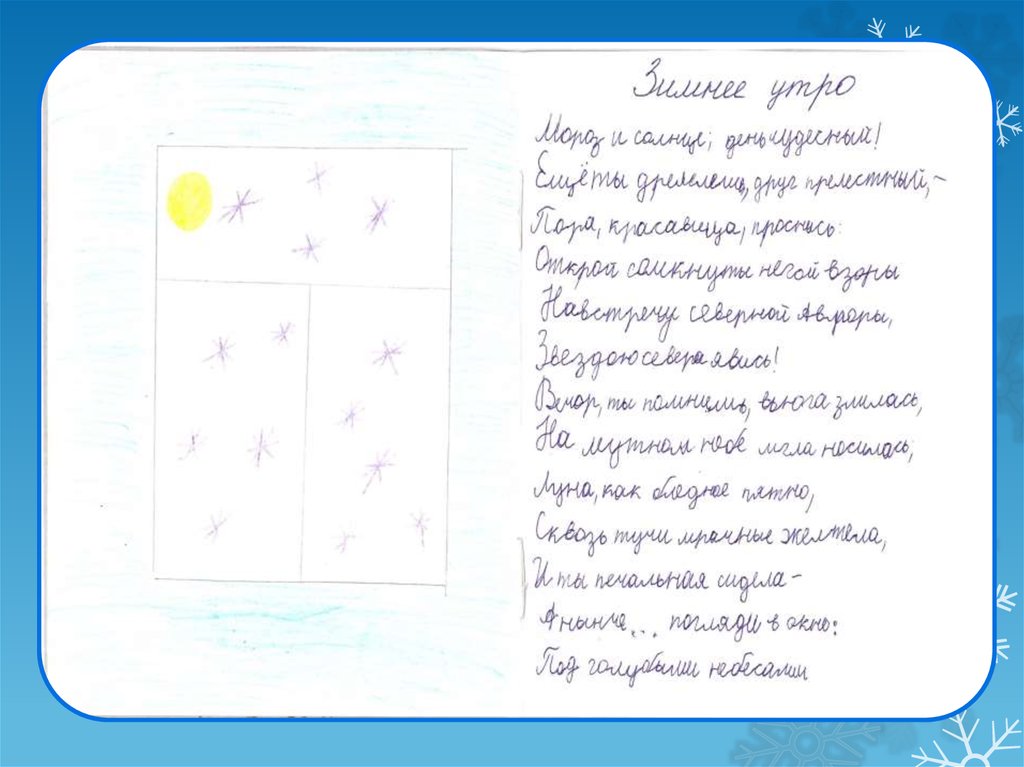 Зимнее утро
Мороз и солнце; день чудесный!
Ещё ты дремлешь, друг прелестный,-
Пора, красавица, проснись:
Открой сомкнуты негой взоры
Навстречу северной Авроры,
Звездою севера явись!
Вечор, ты помнишь, вьюга злилась,
На мутном небе мгла носилась;
Луна, как бледное пятно,
Сквозь тучи мрачные желтела,
И ты печальная сидела-
А нынче... погляди в окно:
Под голубыми небесами